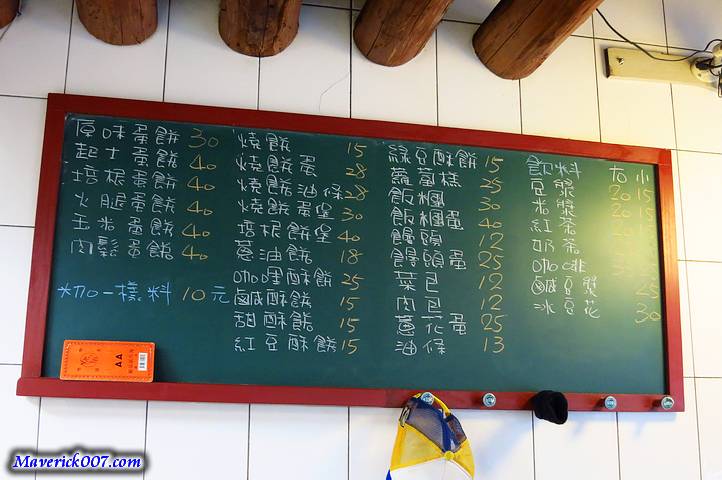 原味蛋餅 30
起士蛋餅 40
培根蛋餅 40
火腿蛋餅 40
玉米蛋餅 40
肉鬆蛋餅 40
*加一樣料 10元
燒餅 15
燒餅蛋 28
燒餅油條 28
燒餅蛋堡 30
培根餅堡 40
蔥油餅 18
咖哩酥餅 25
鹹酥餅 15
甜酥餅 15
紅豆酥餅 15
綠豆酥餅 15
蘿蔔糕 25
飯糰 30
飯糰蛋 40
饅頭 12
饅頭蛋 25
菜包 12
肉包 12
蔥花蛋 25
油條 13
飲料 大 小
豆漿 20 15
米漿 20 15
紅茶
奶茶
咖啡
鹹豆漿 25
冰豆花 30
Maverick007.com